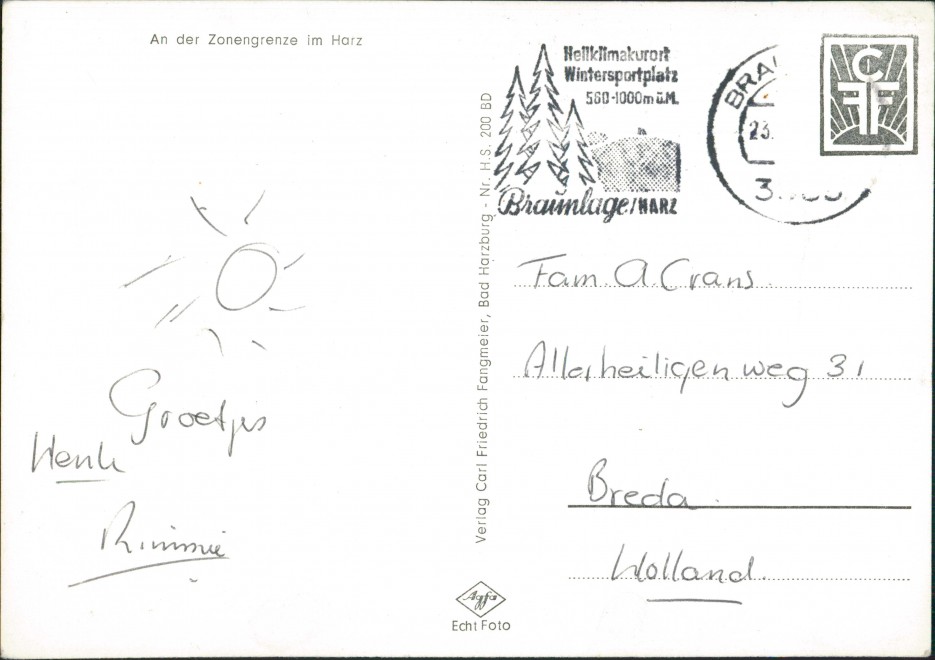 An der Zonengrenze im Harz
Heilklimakurort
Wintersportplatz
560-1000m ü.M.
Braunlage/HARZ
BRA
23.
CFF
Groetjes
Henk
Verlag Carl Friedrich Fangmeier, Bad Harzburg - Nr. H.S. 200 BD
Fam. A. Crans
Allerheiligenweg 31
Breda
Holland
Agfa
Echt Foto